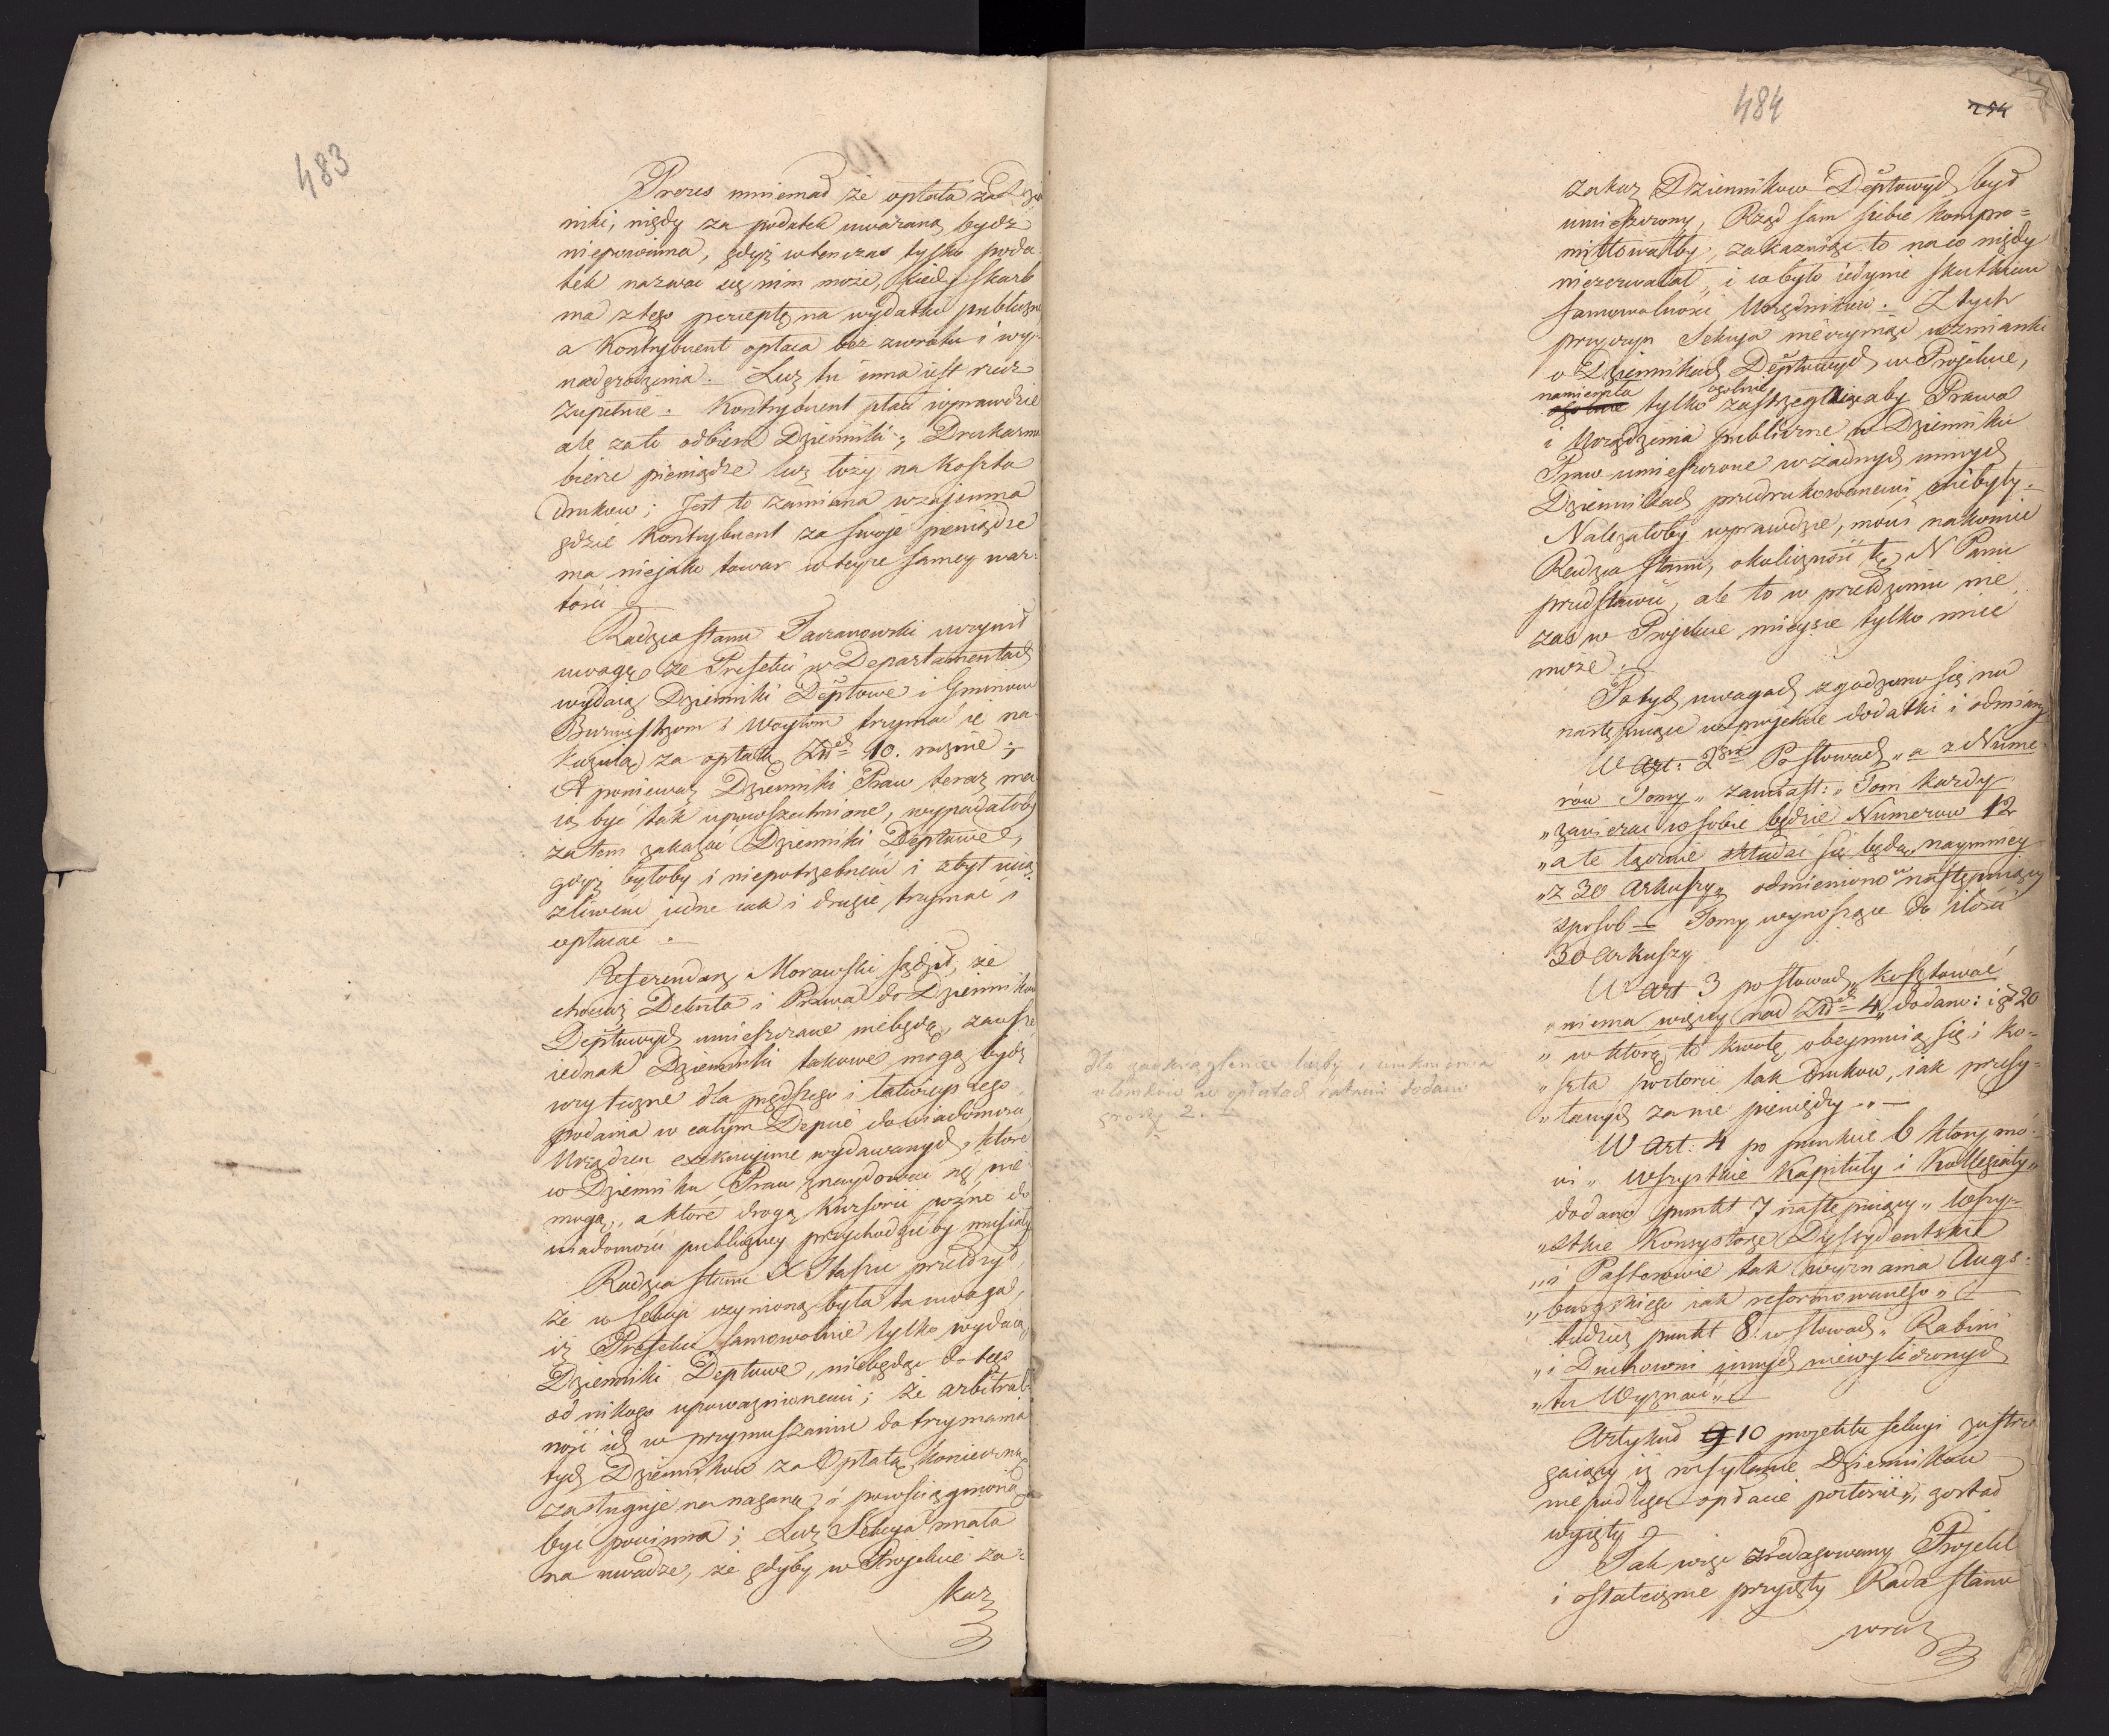 483
Prezes mniemał że opłata za Dzien
niki, nigdy za podatek uważaną bydź
niepowinna, gdyż wtenczas tylko poda
tek nazwać się nim może, kiedy skarb
ma z tego perceptę na wydatki publiczne
a Kontrybuent opłaca bez zwrotu i wy-
nadgrodzenia. Lecz tu inna iest rzecz
zupełnie. Kontrybuent płaci wprawdzie
ale za to odbiera Dzienniki; Drukarnia
bierze pieniądze lecz łoży na koszta
druków; Jest to zamiana wzajemna
gdzie Kontrybuent za swoje pieniądze
ma niejako towar w teyże samey war-
tości.
Radzca stanu Tarzanowski uczynił
uwagę że Prefekci w Departamentach
wydaią Dzienniki Dep̃towe i Gminom
Burmistrzom i Woytom trzymać ie na-
kazuią za opłatą Zł 10. rocznie;
A ponieważ Dzienniki Praw teraz ma
ią być tak upowszechnione, wypadałoby
zatem zakazać Dzienniki Dep̃towe,
gdyż byłoby i niepotrzebnem i zbyt ucią
żliwem iedne iak i drugie trzymać i
opłacać.
Referendarz Morawski sądził, że
chociaż Dekreta i Prawa do Dzienników
Dep̃towych umieszczane niebędą, zawsze
iednak Dzienniki takowe mogą bydź
użyteczne dla prędszego i łatwieyszego
podania w całym Dep̃cie do wiadomości
Urządzeń exekucyine wydawanych, które
w Dzienniku Praw znaydować się nie
mogą, a które drogą Kursorii późno do
wiadomości publiczney przychodzić by musiały
Radzca stanu X Staszic przełożył,
że w Sekcyi czynioną była ta uwaga,
iż Prefekci samowolnie tylko wydaią
Dzienniki Dep̃towe, niebędąc do tego
od nikogo upoważnionemi; że arbitral
ność ich w przymuszaniu do trzymania
tych Dzienników za Opłatą koniecznie
zasługuje na naganę i powściągnioną
być powinna; Lecz Sekcya miała
na uwadze, że gdyby w Projekcie za-
kaz
484
254
zakaz Dzienników Dep̃towych był
umieszczony, Rząd sam siebie kompro=
mittowałby, zakazuiąc to na co nigdy
niezezwalał, i co było iedynie skutkiem
samowolności Urzędników. Z tych
przyczyn Sekcya nieczyniąc wzmianki
o Dziennikach Dep̃towych w Projekcie,
namieniła ogólnie
ogólnie tylko zastrzegaiąc aby Prawa
i Urządzenia publiczne w Dzienniku
Praw umieszczone w żadnych innych
Dziennikach przedrukowanemi niebyły.
Należałoby wprawdzie, mówi nakoniec
Radzca stanu, okoliczność tę N Panu
przedstawić, ale to w przełożeniu nie
zaś w Projekcie mieysce tylko mieć
może.
Po tych uwagach zgodzono się na
następuiące w projekcie dodatki i odmiany
W Art: 2gim Po słowach „a z Nume-
rów Tomy„ zamiast: „Tom każdy
„zawierać w sobie będzie Numerów 12
„a te łącznie składać się będą naymniey
„z 30 Arkuszy„ odmieniono w następuiący
sposób – Tomy wynoszące do ilości
30 Arkuszy
W Art 3 po słowach „kosztować
„niema więcey nad Zł 4„ dodano: i gr 20
„w którą to kwotę obeymuią się i ko-
„szta portorii tak druków, iak przesy-
„łanych za nie pieniędzy„ –
dla zaokrąglenia liczby i uniknienia
ułomków w opłatach ratami dodano
groszy 2.
W Art. 4 po punkcie 6 który mó-
wi „wszystkie Kapituły i Kollegiaty„
dodano punkt 7 następuiący „Wszy-
„stkie Konsystorze Dyssydentskie
„i Pastorowie tak wyznania Augs-
„burgskiego iak reformowanego„
tudzież punkt 8. w słowach „Rabini
„i Duchowni innych niewyliczonych
„tu Wyznań„
Artykuł 9 10 projektu sekcyi zastrze
gaiący iż rozsyłanie Dzienników
nie podlega opłacie portorii„, został
wyięty
Tak więc zredagowany Projekt
i ostatecznie przyięty Rada stanu
wraz